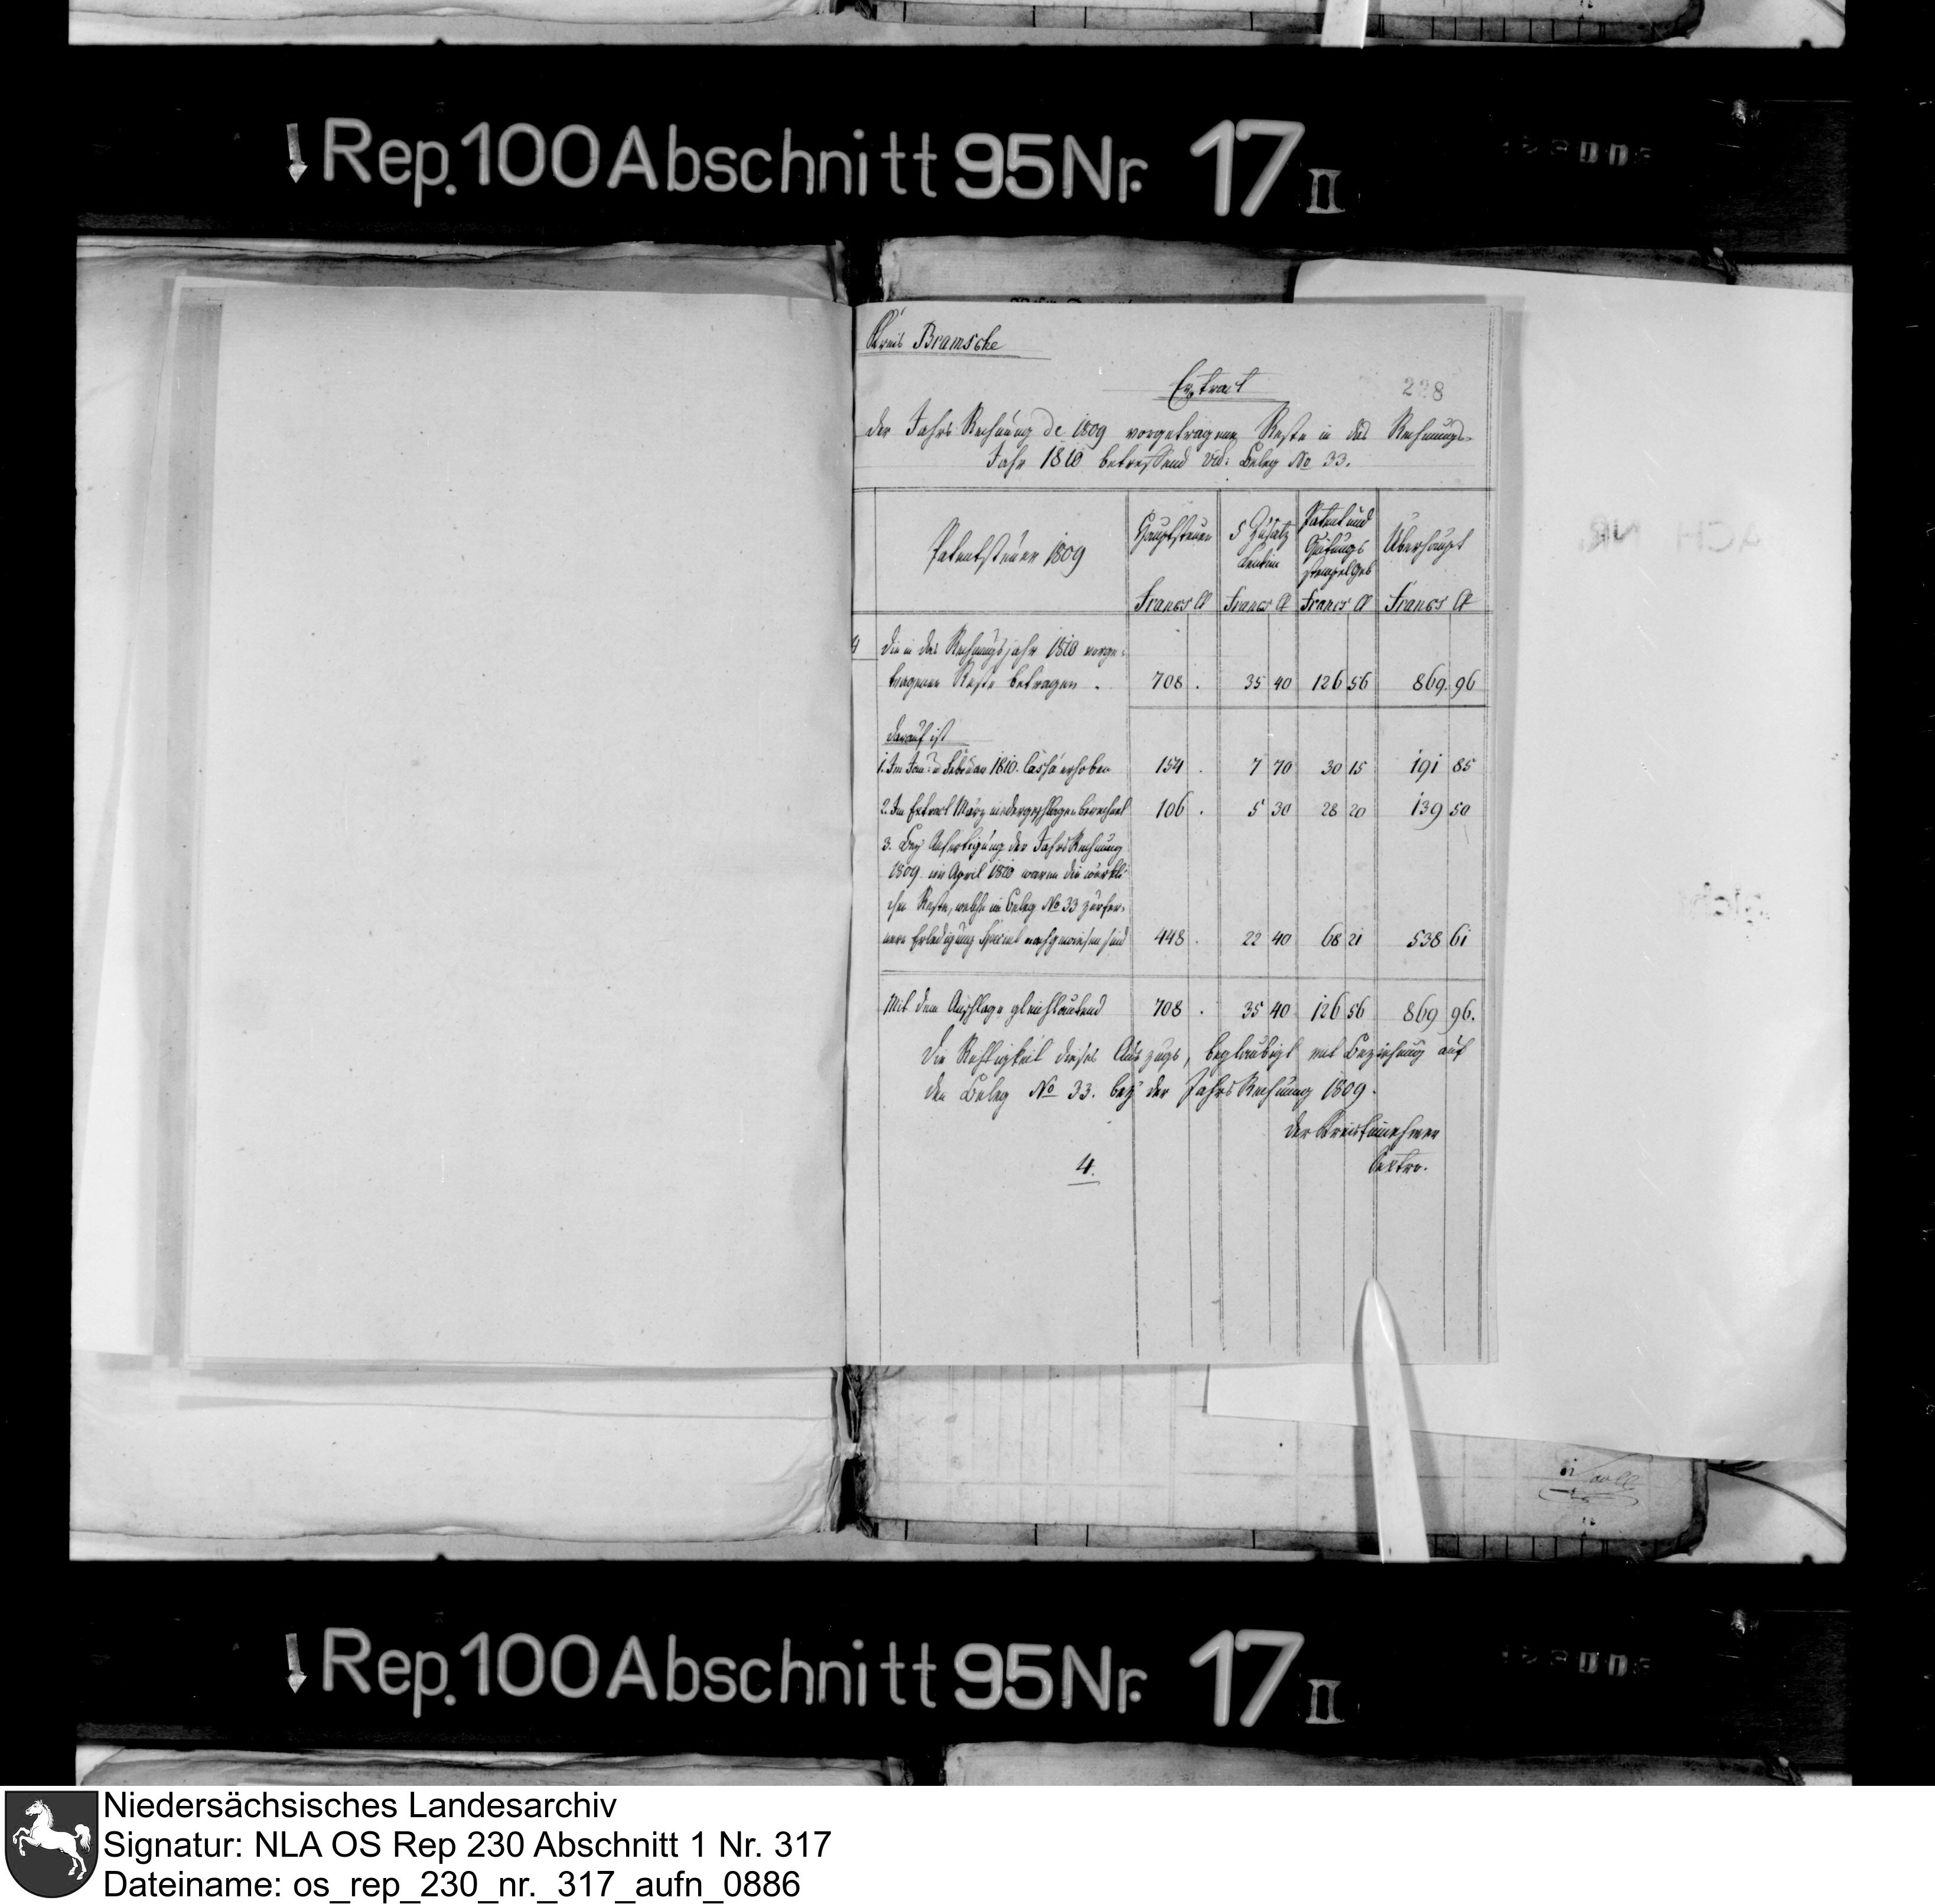 Rep. 100 Abschnitt 95 Nr. 17 II
Kreis Bramsche
Extract
228
der Jahrs Rechnung de 1809 vorgetragene Reste in das Rechnungs-
Jahr 1810 betreffend vid: Beleg No 33.
Patentsteuer 1809
Hauptsteuer
Francs Ct
5 Zusatz
Centim
Francs Ct
Patent und
Quitungs
stempelgeb
Francs Ct
Überhaupt
Francs Ct
4 die in das Rechnungsjahr 1810 vorge-
tragenen Reste betragen . 708 . 35 40 126 56 869. 96
darauf ist
1. Im Jan: u Februar 1810. Cassa erhoben 154 . 7 70 30 15 191 85
2. Im Extract März niedergeschlagen berechnet 106 . 5 30 28 20 139 50
3. Bey Anfertigung der Jahrs Rechnung
1809 im April 1810 waren die würkli-
chen Reste, welche im Beleg No 33 zur fer-
nern Erledigung Special nachgewiesen sind 448 . 22 40 68 21 538 61
Mit dem Aufschlage gleichlautend 708 . 35 40 126 56 869 96.
Die Richtigkeit dieses Auszugs, beglaubigt mit Beziehung auf
den Beleg No 33. bey der Jahrs Rechnung 1809.
der Kreis Einnehmer
4.
Rep. 100 Abschnitt 95 Nr. 17 II
Niedersächsisches Landesarchiv
Signatur: NLA OS Rep 230 Abschnitt 1 Nr. 317
Dateiname: os_rep_230_nr._317_aufn_0886